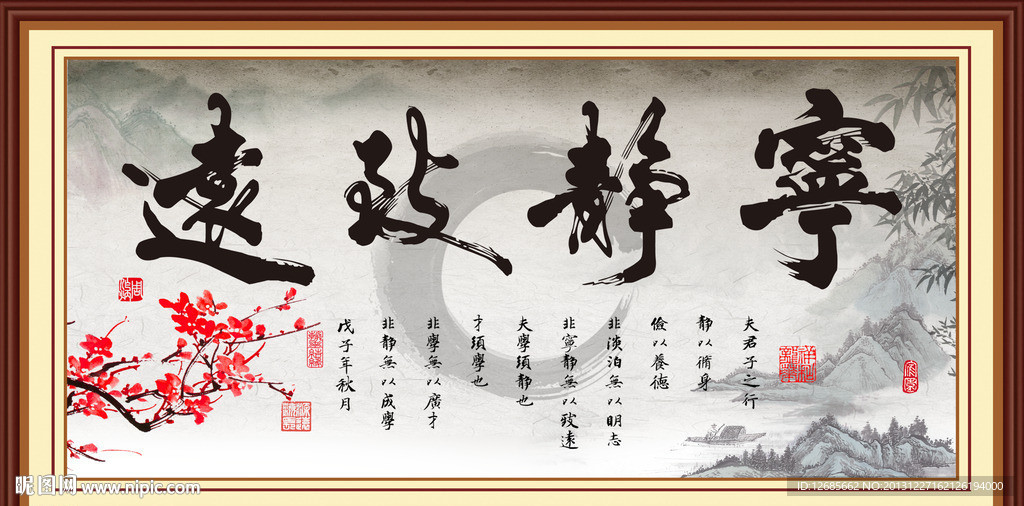 寧靜致遠
夫君子之行
靜以脩身
儉以養德
非淡泊無以明志
非寧靜無以致遠
夫學須靜也
才須學也
非學無以廣才
非靜無以成學
戊子年秋月
昵图网 www.nipic.com
ID:12685662 NO:20131227162126194000